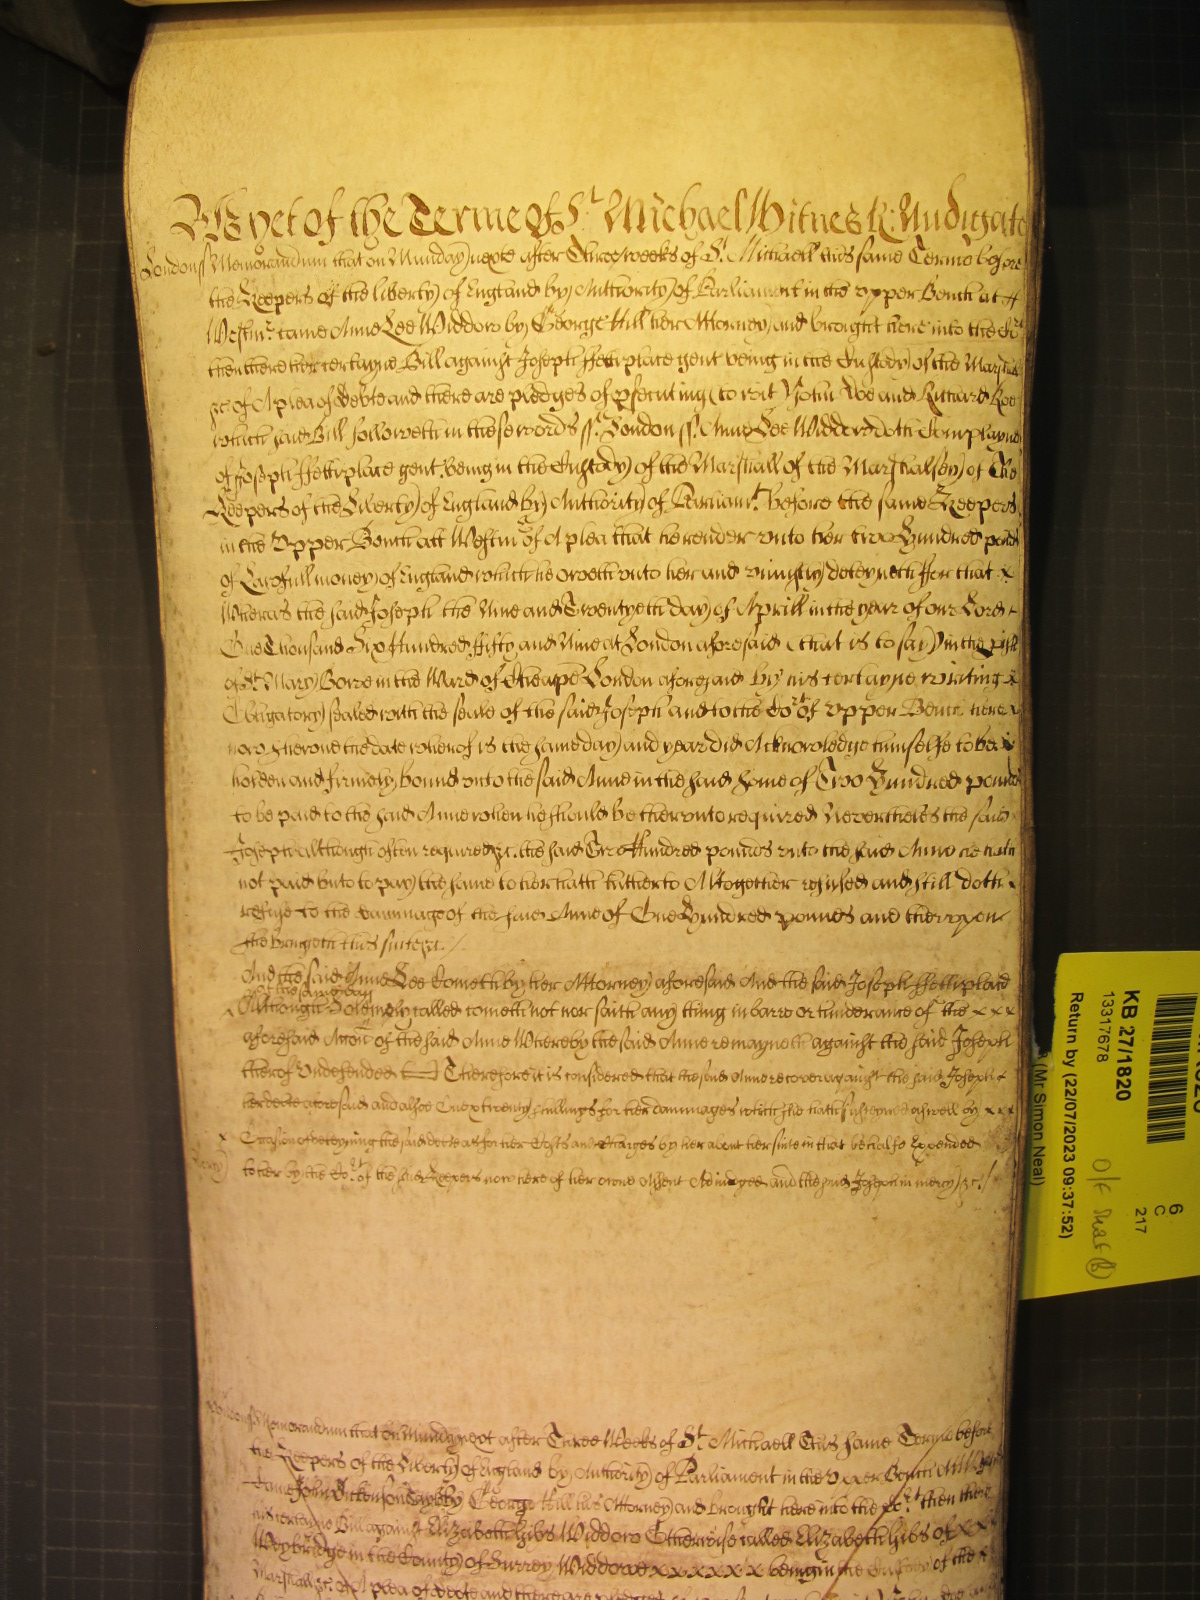 As yet of the Terme of St Michael Witnes R: Nudigate
London ss Memorandum that on Munday next after Three weekes of St Michaell this same Terme before
the Keepers of the liberty of England by Authority of Parliament in the upper Bench at
Westmr came Anne Lee Widdow by George Hill her Attorney and brought here into the Cort
then there her certayne Bill against Joseph Fettiplace gent being in the Custody of the Marshall
&c of A plea of debte and there are pledges of psecuting (to wit) John Doe and Richard Roe
which said Bill followeth in these words ss. London ss. Anne Lee Widdow doth Complayne
of Joseph Fettiplace gent being in the Custody of the Marshall of the Marshalsey of the
Keepers of the Liberty of England by Authority of Parliamt. before the same Keepers
in the Upper Bench att Westmr of A plea that he render unto her two Hundred pounds
of Lawfull money of England which he oweth unto her and uniustly deteyneth For that x
Whereas the said Joseph the Nine and Twentyeth day of Aprill in the year of our Lord
One Thousand Six Hundred Fifty and Nine at London aforesaid (that is to say) in the pish
of St Mary Bowe in the Ward of Cheape London aforesaid by his certayne writing
Obligatory sealed with the seale of the said Joseph and to the Cort of Upper Bench here
now shewne the date whereof is the same day and year did Acknowledge himselfe to be
holden and firmely bound unto the said Anne in the said some of Two Hundred pounds
to be paid to the said Anne when he should be thereunto required Nevertheles the said
Joseph although often required &c. the said Two Hundred pounds unto the said Anne he hath
not paid but to pay the same to her hath hitherto Altogether refused and still doth
refuse to the dammage of the said Anne of One Hundred pounds and thereupon
she bringeth this suite &c.
And the said Anne Lee Cometh by her Attorney aforesaid And the said Joseph Fettiplace
Although Solemnly called cometh not nor saith any thing in barre or hinderance of the x x x
aforesaid Accon of the said Anne Whereby the said Anne remayneth against the said Joseph
thereof Undefended Therefore it is considered that the said Anne recover against the said Joseph
her debte aforesaid and alsoe twenty shillings for her dammages which she hath susteyned aswell by x x x
Occasion of deteyning the said debte as for her Costs and Charges by her about her suite in that behalfe Expended
to her by the Cort of the said Keepers now here of her owne Assent Adiudged and the said Joseph in mercy &c.
mercy
London ss Memorandum that on Munday next after Three Weekes of St Michaell this same Terme before
the Keepers of the Liberty of England by Authority of Parliament in the Upper Bench At Westmr
Came John Dickenson by George Hill his Attorney and brought here into the Cort then there
his certayne Bill against Elizabeth Hibs Widdow Otherwise called Elizabeth Hibs of x x
Weybridge in the County of Surrey Widdowe x x x x x x being in the Custody of the x
Marshall &c. of A plea of debte and there are pledges
KB 27/1820
13317678
Return by (22/07/2023 09:37:52)
(Mr Simon Neal)
6
C
217